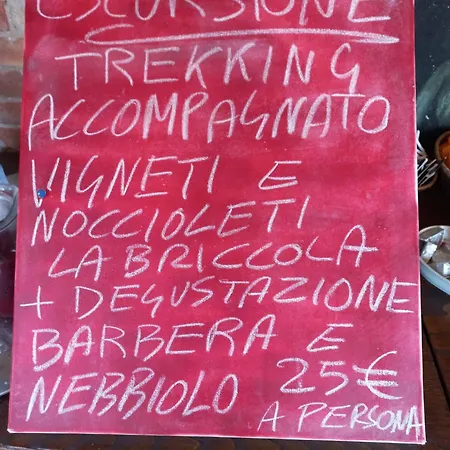 ESCURSIONE
TREKKING
ACCOMPAGNATO
VIGNETI E
NOCCIOLETI
LA BRICCOLA
+ DEGUSTAZIONE
BARBERA E
NEBBIOLO 25€
A PERSONA